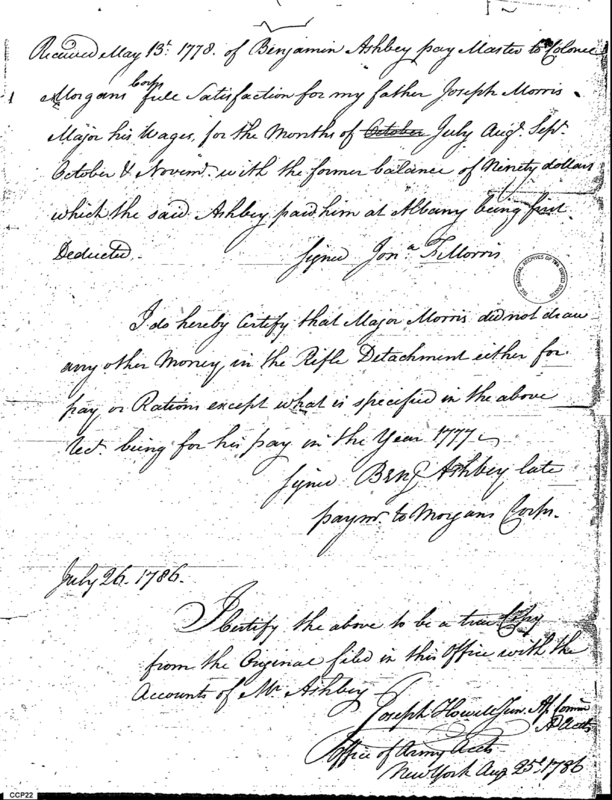 Received May 13t. 1778. of Benjamin Ashbey pay Master to Colonel
Morgans Corps full Satisfaction for my father Joseph Morris
Major his Wages, for the Months of October July Augt. Sepr.
October & Novimr. with the former balance of Ninety dollars
which the said Ashbey paid him at Albany being first
Deducted.
Signed Jona. F Morris
THE NATIONAL ARCHIVES OF THE UNITED STATES
I do hereby Certify that Major Morris did not draw
any other Money in the Rifle Detachment either for
pay or Rations except what is specified in the above
Rect. being for his pay in the Year 1777
Signed Benj Ashbey late
paymr. to Morgans Corps.
July 26. 1786.
I Certify the above to be a true Copy
from the Original filed in this Office with the
Accounts of Mr Ashbey
Joseph Howell Jun. As. Comr
A Accts
Office of Army Accts
New York Aug 25t. 1786
CCP22